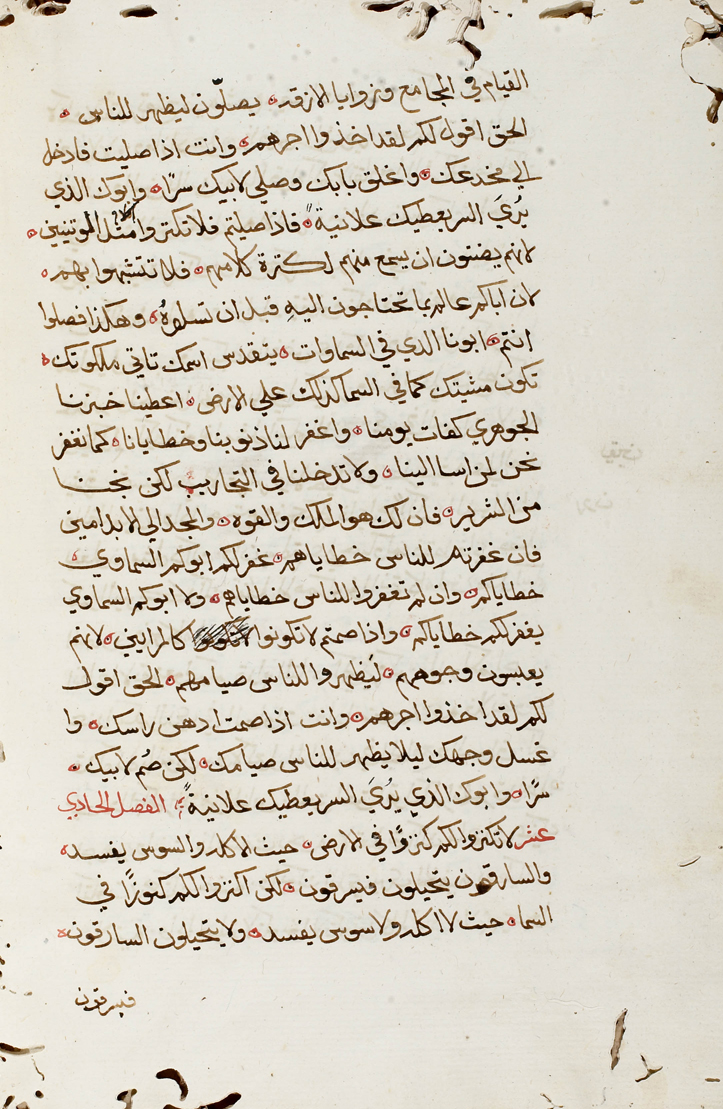 القيام في المجامع وزوايا الازقه يصلّون ليظهر للناس
الحق اقول لكم لقد اخذوا اجرهم وانت اذا صليت فادخل
الي مخدعك واغلق بابك وصلي لابيك سرًا وابوك الذي
يُريَ السر يعطيك علانيةً فاذا صليتم فلا تكتروا مثل الموتنيين
لانهم يضنون ان يسمع منهم لكترة كلامهم فلا تتشبهوا بهم
لان اباكم عالم بما تحتاجون اليهِ قبل ان تسلوهُ وهكذا فصلوا
انتم ابونا الدي في السماوات يتقدس اسمك تاتي ملكوتك
تكون مشيتك كما في السما كذلك علي الارض اعطينا خبزنا
الجوهري كفات يومنا واغفر لنا ذنوبنا وخطايانا كما نغفر
نحن لمن اسا الينا ولا تدخلنا في التجاريب لكن نجنا
من الشرير فان لك هو الملك والقوه والمجد الي الابد امين
فان غفرتم للناس خطاياهم غفر لكم ابوكم السماوي
خطاياكم وان لم تغفروا للناس خطاياهم ولا ابوكم السماوي
يغفر لكم خطاياكم واذا صمتم لا تكونوا كالمرايين لانهم
يعبسون وجوههم ليظهروا للناس صيامهم الحق اقول
لكم لقد اخذوا اجرهم وانت اذا صمت ادهن راسك وا
غسل وجهك ليلا يظهر للناس صيامك لكن صُم لابيك
سرًا وابوك الذي يُريَ السر يعطيك علانيةً الفصل الحادي
عشر لا تكنزوا لكم كنزوًا في الارض حيث الاكله والسوس يفسد
والسارقون يتحيلون فيسرقون لكن اكنزوا لكم كنوزًا في
السما حيث لا اكله ولا سوس يفسد ولا يتحيلون السارقون
فيسرقون